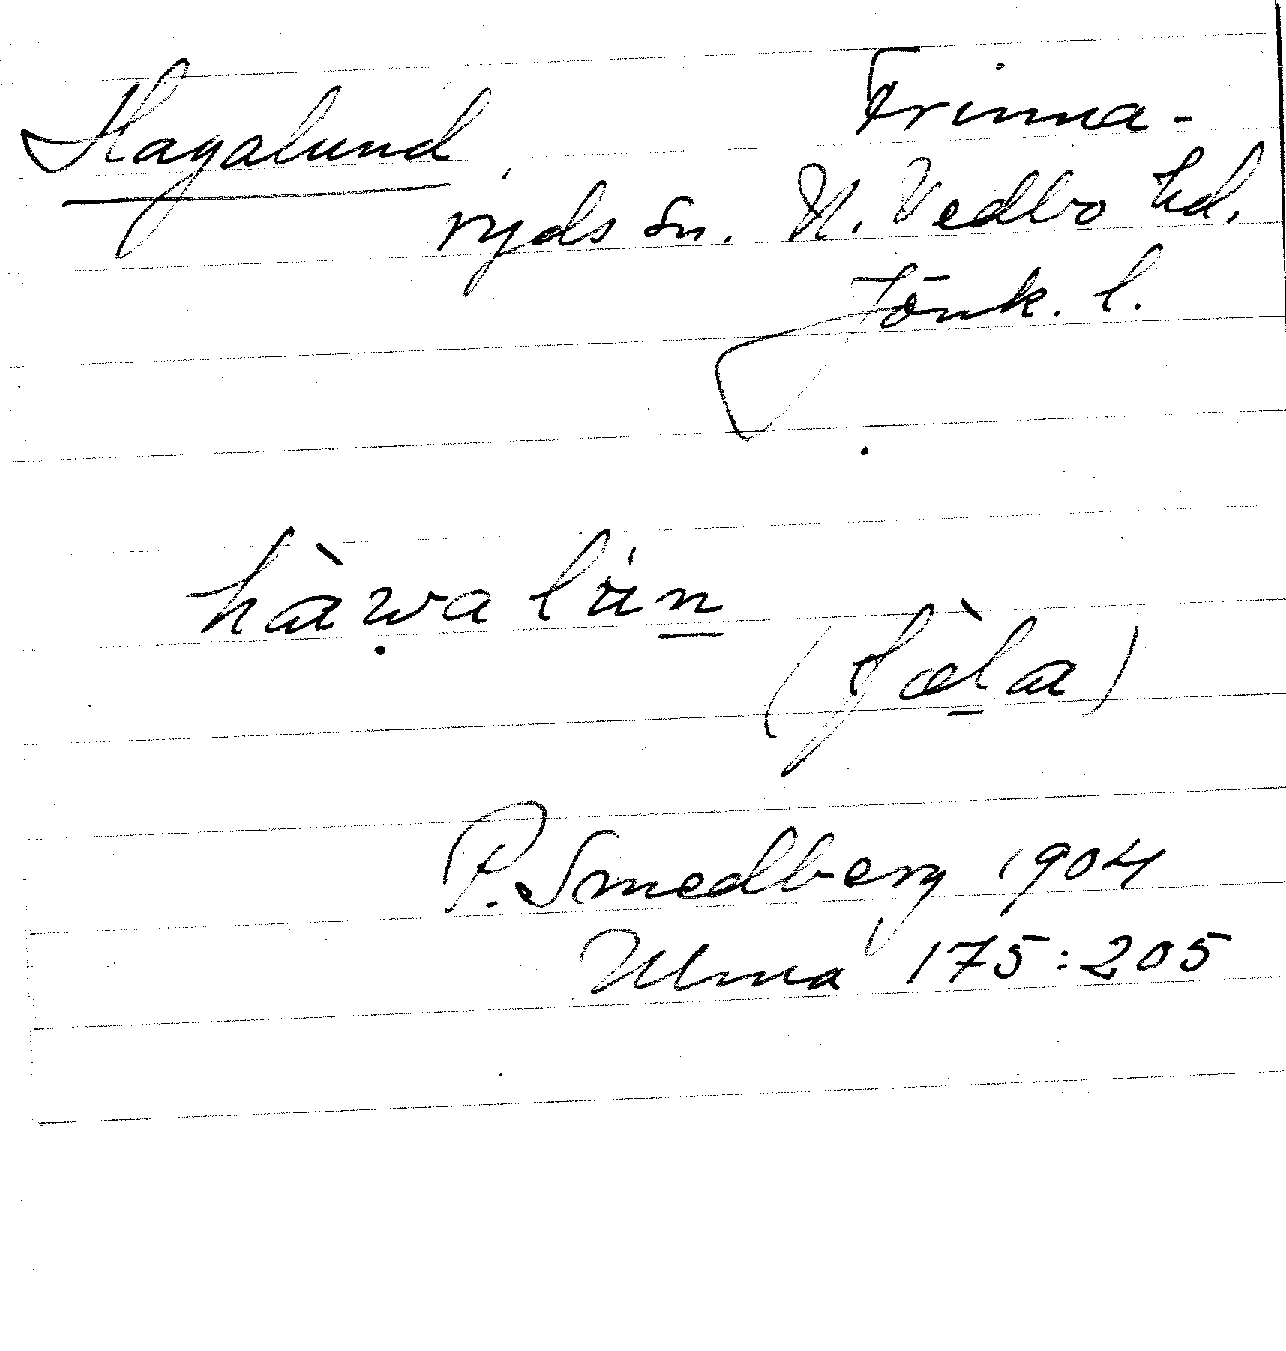 Hagalund, Frinna-
ryds sn. N. Vedbo hd.
Jönk. l.
hàwalún
(fœ̀la)
P. Smedberg 1904
Ulma 175:205